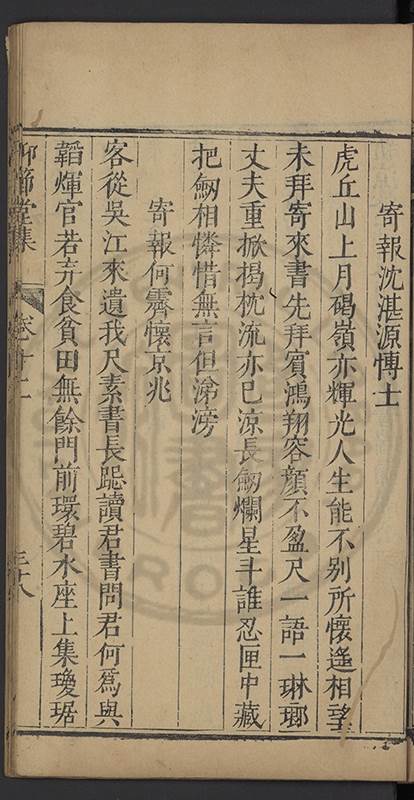 寄報沈湛源博士
虎丘山上月碣嶺亦輝光人生能不别所懷遙相望
未拜寄來書先拜賓鴻翔容顔不盈尺一語一琳瑯
丈夫重掀揭枕流亦已涼長劔爛星斗誰忍匣中藏
把劔相憐惜無言但涕滂
寄報何霽懷京兆
客從吳江來遺我尺素書長跽讀君書問君何爲與
韜煇官若弃食貧田無餘門前環碧水座上集瓊琚
仰節堂集
卷十一
三十八